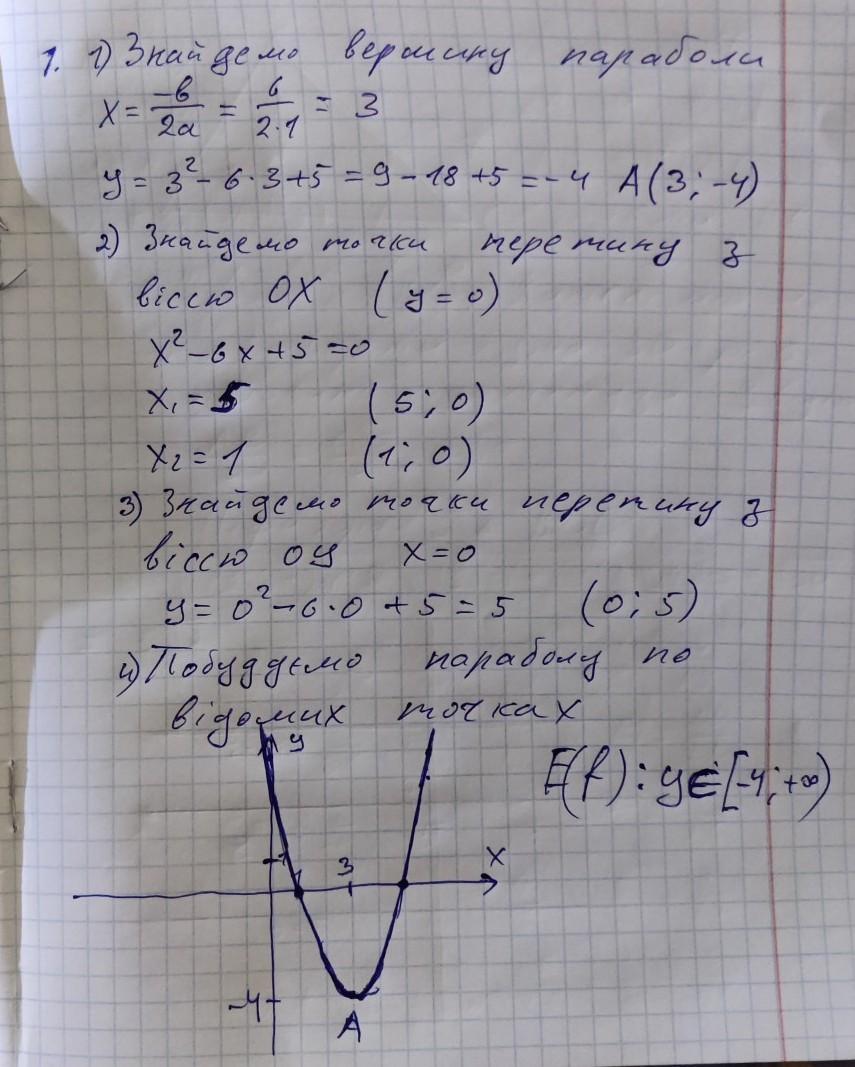 1. 1) Знайдемо вершину параболи
x = -b/2a = 6/2·1 = 3
y = 3² - 6·3 + 5 = 9 - 18 + 5 = -4 A(3; -4)
2) Знайдемо точки перетину з
віссю OX (y = 0)
x² - 6x + 5 = 0
x₁ = 5 (5; 0)
x₂ = 1 (1; 0)
3) Знайдемо точки перетину з
віссю OY x = 0
y = 0² - 6·0 + 5 = 5 (0; 5)
4) Побуддємо параболу по
відомих точках
y
E(f): y ∈ [-4; +∞)
1 3 x
-4
A